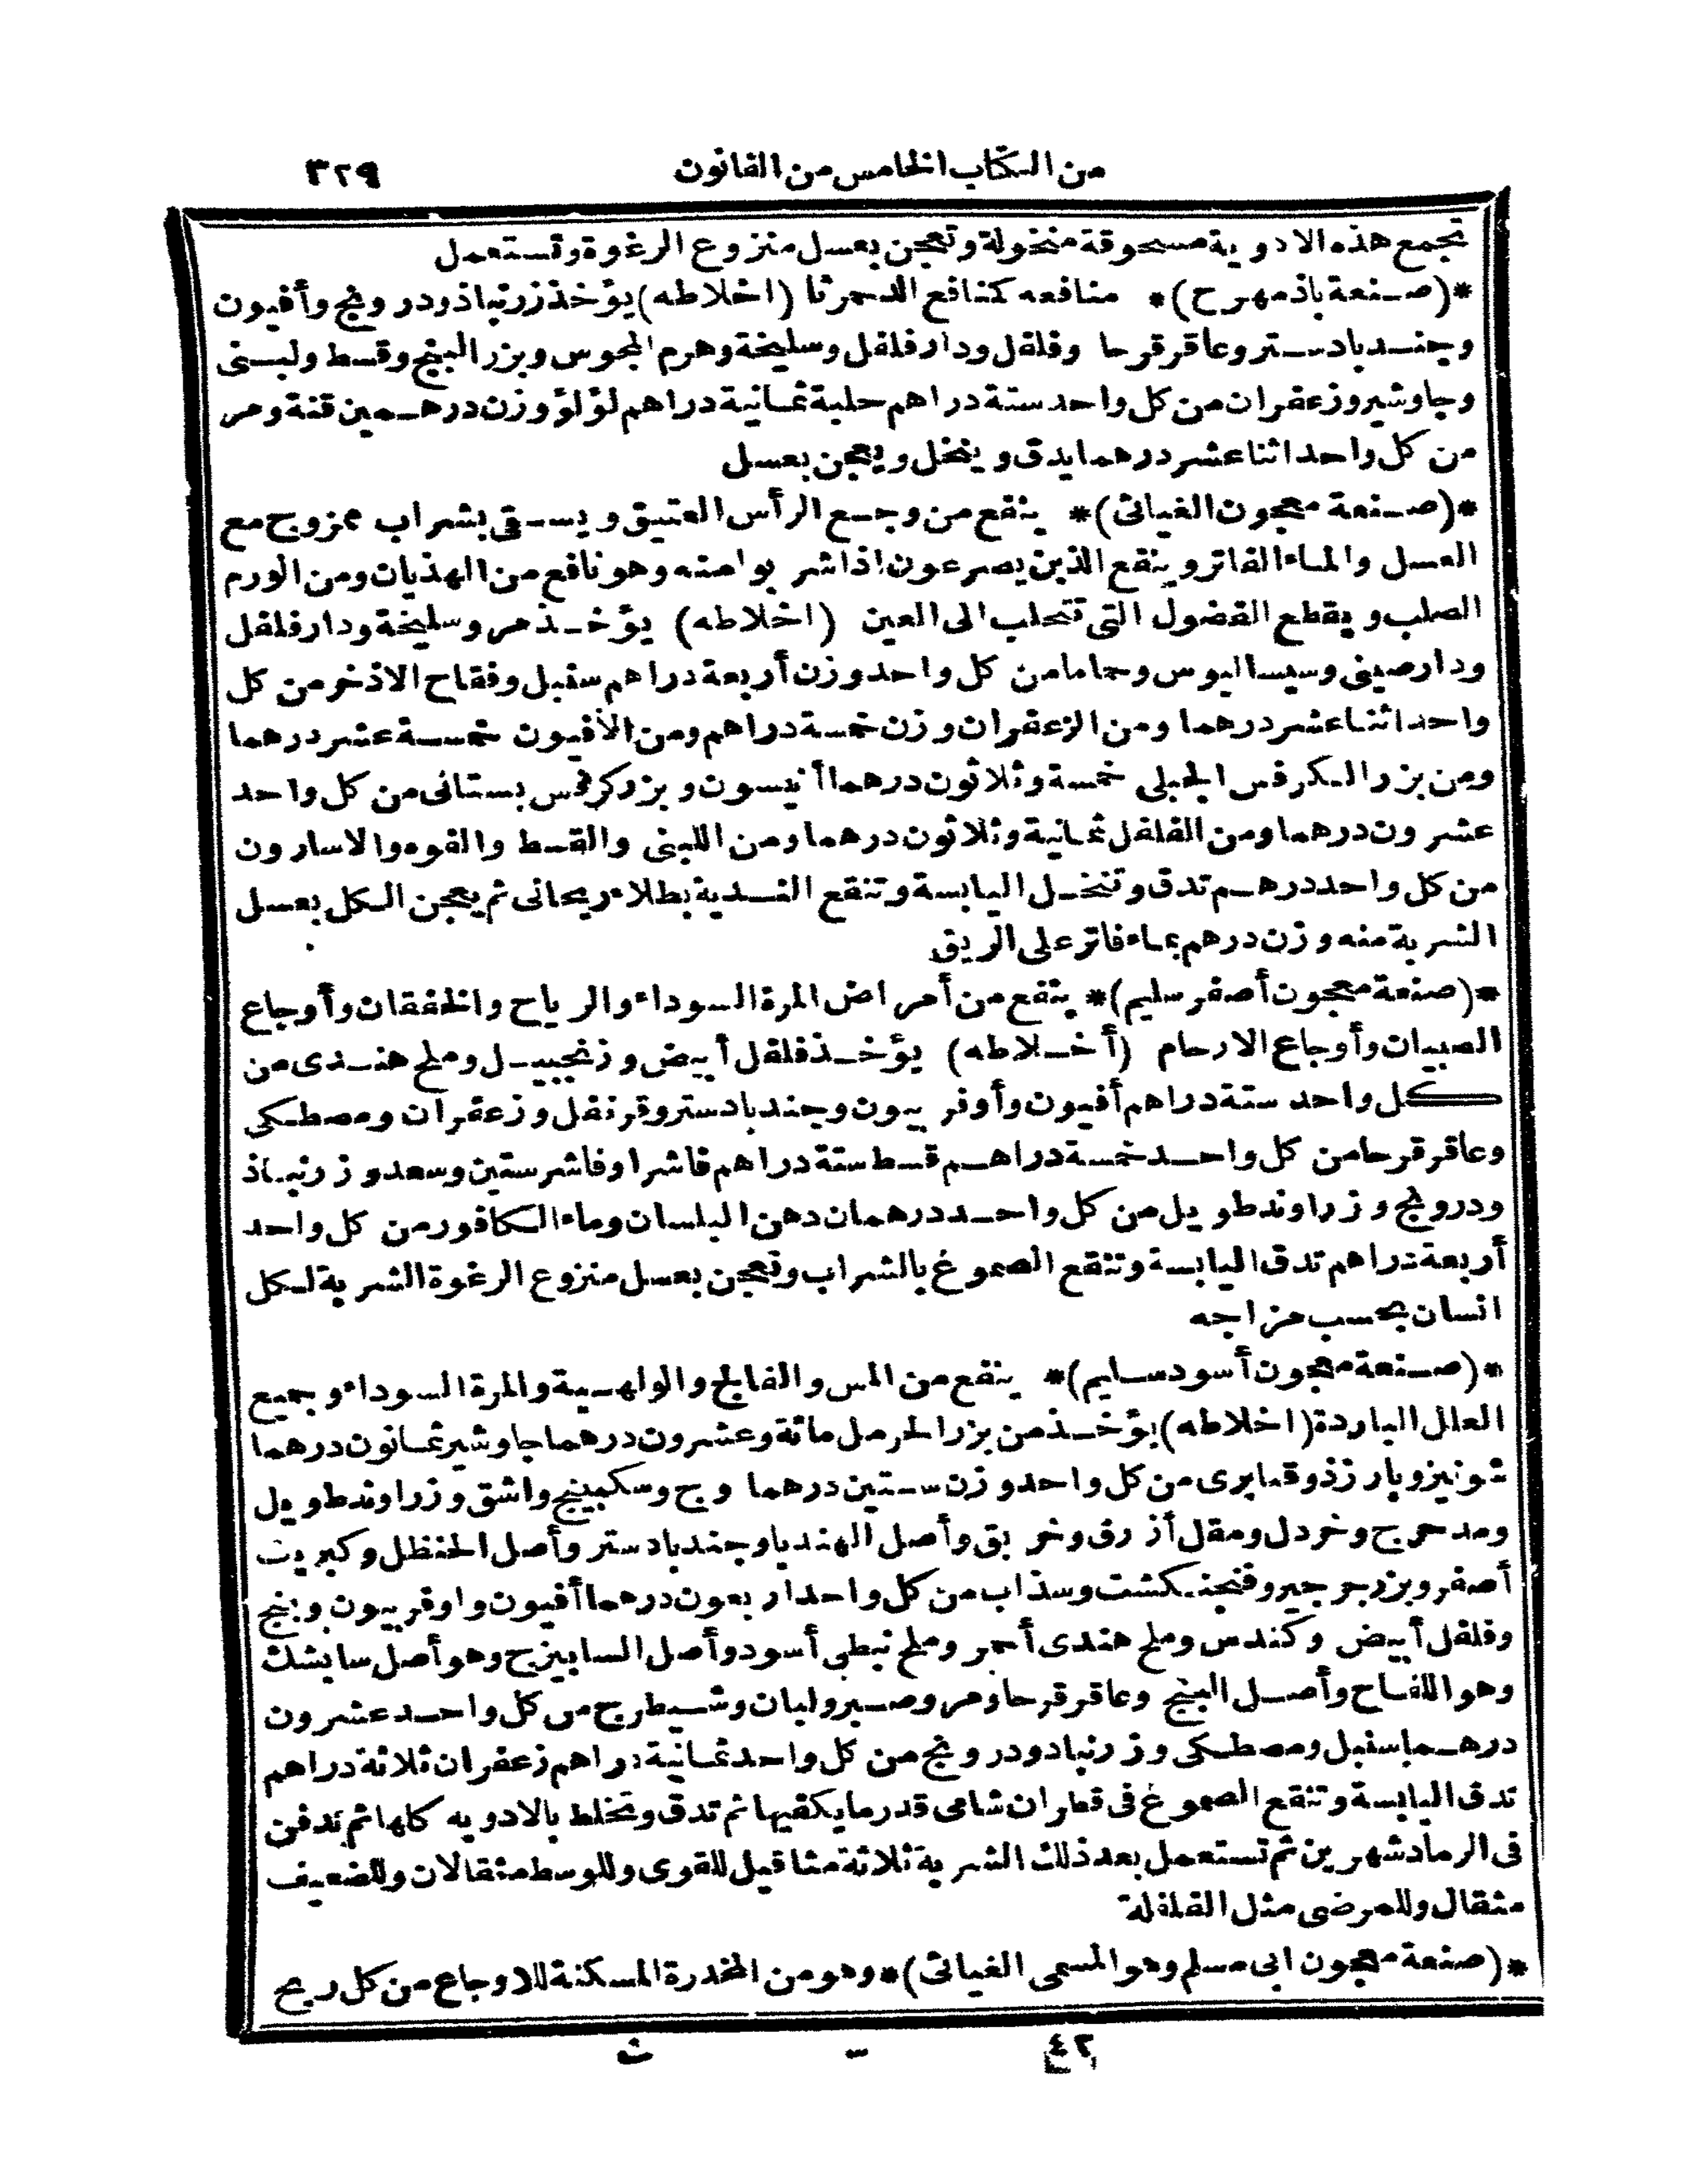 من الكتاب الخامس من القانون ٣٢٩
تجمع هذه الادوية مسحوقة منخولة وتعجن بعسل منزوع الرغوة وتستعمل
*(صنعة باذمهرح)* منافعه كمنافع الدحمرثا (اخلاطه) يؤخذ زرنباذ ودرونج وأفيون
وجندبادستر وعاقرقرحا وفلفل ودارفلفل وسليخة وهرم المجوس وبزر البنج وقسط ولبنى
وجاوشير وزعفران من كل واحد ستة دراهم حلبة ثمانية دراهم لؤلؤ وزن درهمين قنة ومر
من كل واحد اثنا عشر درهما يدق وينخل ويعجن بعسل
*(صنعة معجون الغياثى)* ينفع من وجع الرأس العتيق ويسقى بشراب ممزوج مع
العسل والماء الفاتر وينفع الذين يصرعون اذا شربوا منه وهو نافع من الهذيان ومن الورم
الصلب ويقطع الفضول التى تتحلب الى العين (اخلاطه) يؤخذ مر وسليخة ودارفلفل
ودارصينى وسيساليوس وحماما من كل واحد وزن أربعة دراهم سنبل وفقاح الاذخر من كل
واحد اثنا عشر درهما ومن الزعفران وزن خمسة دراهم ومن الأفيون خمسة عشر درهما
ومن بزر الكرفس الجبلى خمسة وثلاثون درهما أنيسون وبزر كرفس بستانى من كل واحد
عشرون درهما ومن الفلفل ثمانية وثلاثون درهما ومن اللبنى والقسط والفوه والاسارون
من كل واحد درهم تدق وتنخل اليابسة وتنقع الندية بطلاء ريحانى ثم يعجن الكل بعسل
الشربة منه وزن درهم بماء فاتر على الريق
*(صنعة معجون أصفر سليم)* ينفع من أمراض المرة السوداء والرياح والخفقان وأوجاع
الصبيان وأوجاع الارحام (أخلاطه) يؤخذ فلفل أبيض وزنجبيل وملح هندى من
كل واحد ستة دراهم أفيون وأوفربيون وجندبادستر وقرنفل وزعفران ومصطكى
وعاقرقرحا من كل واحد خمسة دراهم قسط ستة دراهم فاشرا وفاشرستين وسعد وزرنباذ
ودرونج وزراوند طويل من كل واحد درهمان دهن البلسان وماء الكافور من كل واحد
أربعة دراهم تدق اليابسة وتنقع الصموغ بالشراب وتعجن بعسل منزوع الرغوة الشربة لكل
انسان بحسب مزاجه
*(صنعة معجون أسود سليم)* ينفع من المس والفالج والواهية والمرة السوداء وجميع
العلل الباردة (اخلاطه) يؤخذ من بزر الحرمل مائة وعشرون درهما جاوشير ثمانون درهما
شونيز وبارزذ وقنابرى من كل واحد وزن ستين درهما وج وسكبينج واشق وزراوند طويل
ومدحرج وخردل ومقل أزرق وخربق وأصل الهندبا وجندبادستر وأصل الحنظل وكبريت
أصفر وبزر جرجير وفنجنكشت وسذاب من كل واحد اربعون درهما أفيون واوفربيون وبنج
وفلفل أبيض وكندس وملح هندى أحمر وملح نبطى أسود وأصل السابيزج وهو أصل سابشك
وهو اللفاح وأصل البنج وعاقرقرحا ومر وصبر ولبان وشيطرج من كل واحد عشرون
درهما سنبل ومصطكى وزرنباد ودرونج من كل واحد ثمانية دراهم زعفران ثلاثة دراهم
تدق اليابسة وتنقع الصموغ فى قطران شامى قدر ما يكفيها ثم تدق وتخلط بالادويه كلها ثم تدفن
فى الرماد شهرين ثم تستعمل بعد ذلك الشربة ثلاثة مثاقيل للقوى وللوسط مثقالان وللضعيف
مثقال وللمرضى مثل الفلفلة
*(صنعة معجون ابى مسلم وهو المسمى الغياثى)* وهو من المخدرة المسكنة للاوجاع من كل ريح
٤٢ ث